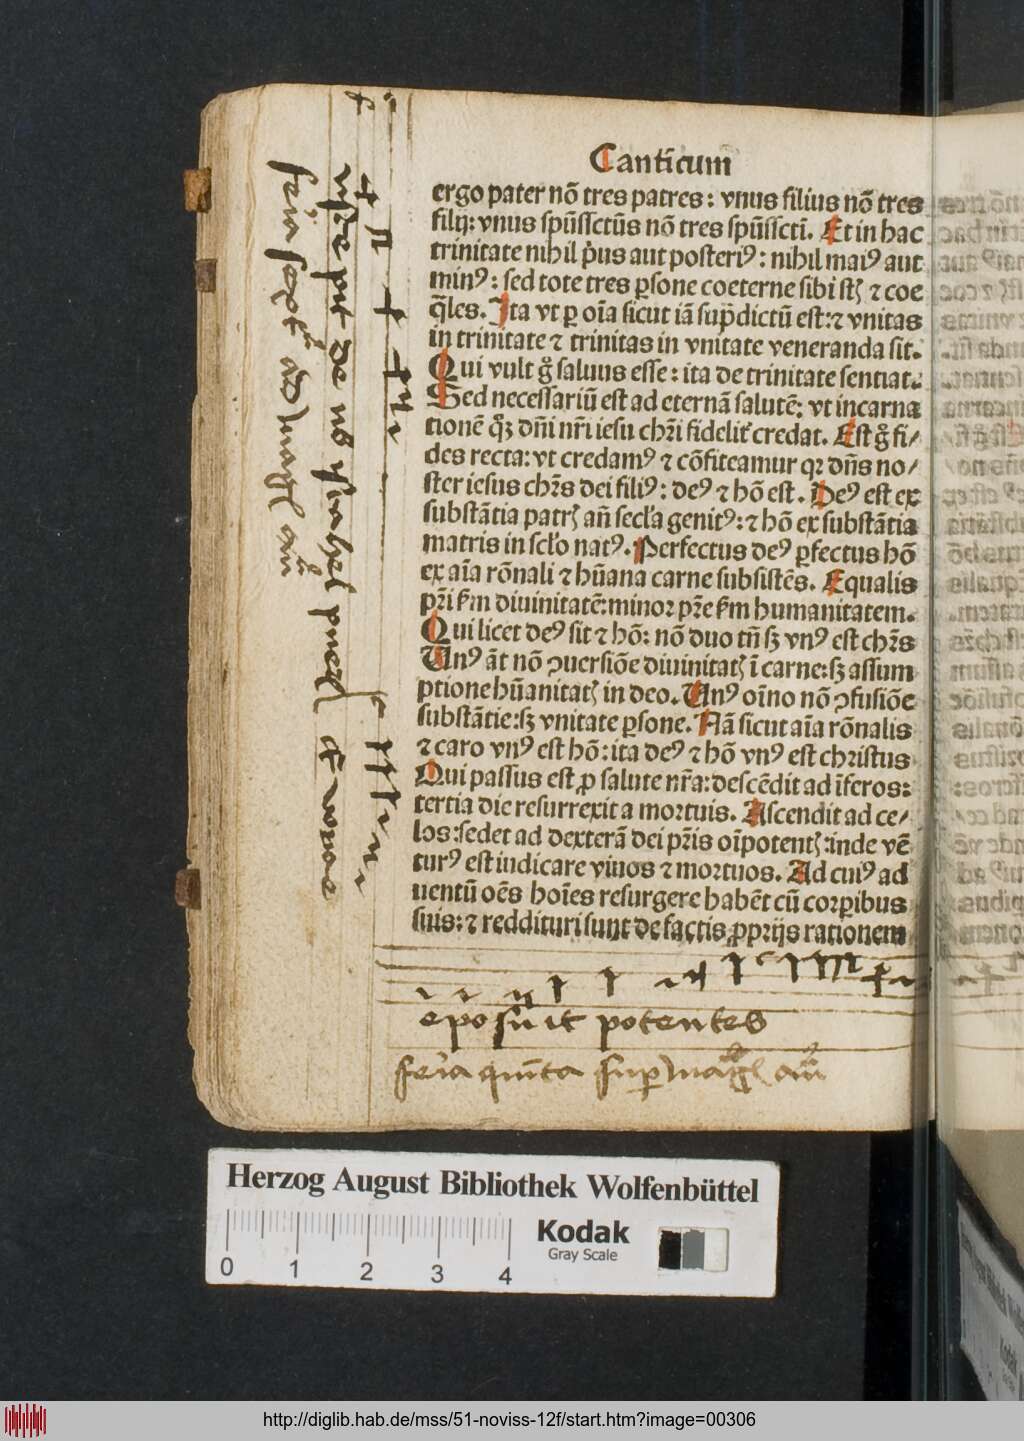 Canticum
ergo pater nō tres patres: vnus filius nō tres
filij: vnus spūssctūs nō tres spūssctī. Et in hac
trinitate nihil p̄us aut posteriꝰ: nihil maiꝰ aut
minꝰ: sed tote tres ꝑsone coeterne sibi st̄ ⁊ coe
q̄les. Ita vt ꝑ oīa sicut iā sup̄dictū est: ⁊ vnitas
in trinitate ⁊ trinitas in vnitate veneranda sit.
Qui vult g̊ saluus esse: ita de trinitate sentiat.
Sed necessariū est ad eternā salutē: vt incarna
tionē q̊ꝫ dn̄i nr̄i iesu chr̄i fidelit̉ credat. Est g̊ fi/
des recta: vt credamꝰ ⁊ cōfiteamur qꝛ dn̄s no/
ster iesus chr̄s dei filiꝰ: deꝰ ⁊ hō est. Deꝰ est ex
substātia patrꝭ an̄ secl̓a genitꝰ: ⁊ hō ex substātia
matris in scl̓o natꝰ. Perfectus deꝰ ꝑfectus hō
ex aīa rōnali ⁊ hūana carne subsistēs. Equalis
pr̄i ẜm diuinitatē: minor pr̄e ẜm humanitatem.
Qui licet deꝰ sit ⁊ hō: nō duo tn̄ sꝫ vnꝰ est chr̄s
Vnꝰ āt nō ꝯuersiōe diuinitatꝭ ī carne: sꝫ assum
ptione hūanitatꝭ in deo. Vnꝰ oīno nō ꝯfusiōe
substātie: sꝫ vnitate ꝑsone. Nā sicut aīa rōnalis
⁊ caro vnꝰ est hō: ita deꝰ ⁊ hō vnꝰ est christus
Qui passus est ꝓ salute nr̄a: descēdit ad īferos:
tertia die resurrexit a mortuis. Ascendit ad ce/
los: sedet ad dexterā dei pr̄is oīpotentꝭ: inde vē
turꝰ est iudicare viuos ⁊ mortuos. Ad cuiꝰ ad
uentū oēs hoīes resurgere habēt cū corꝑibus
suis: ⁊ reddituri sunt de factis ꝓprijs rationem
eposuit potentes
feria quīta sup magͭ añ
Herzog August Bibliothek Wolfenbüttel
Kodak
Gray Scale
0 1 2 3 4
http://diglib.hab.de/mss/51-noviss-12f/start.htm?image=00306